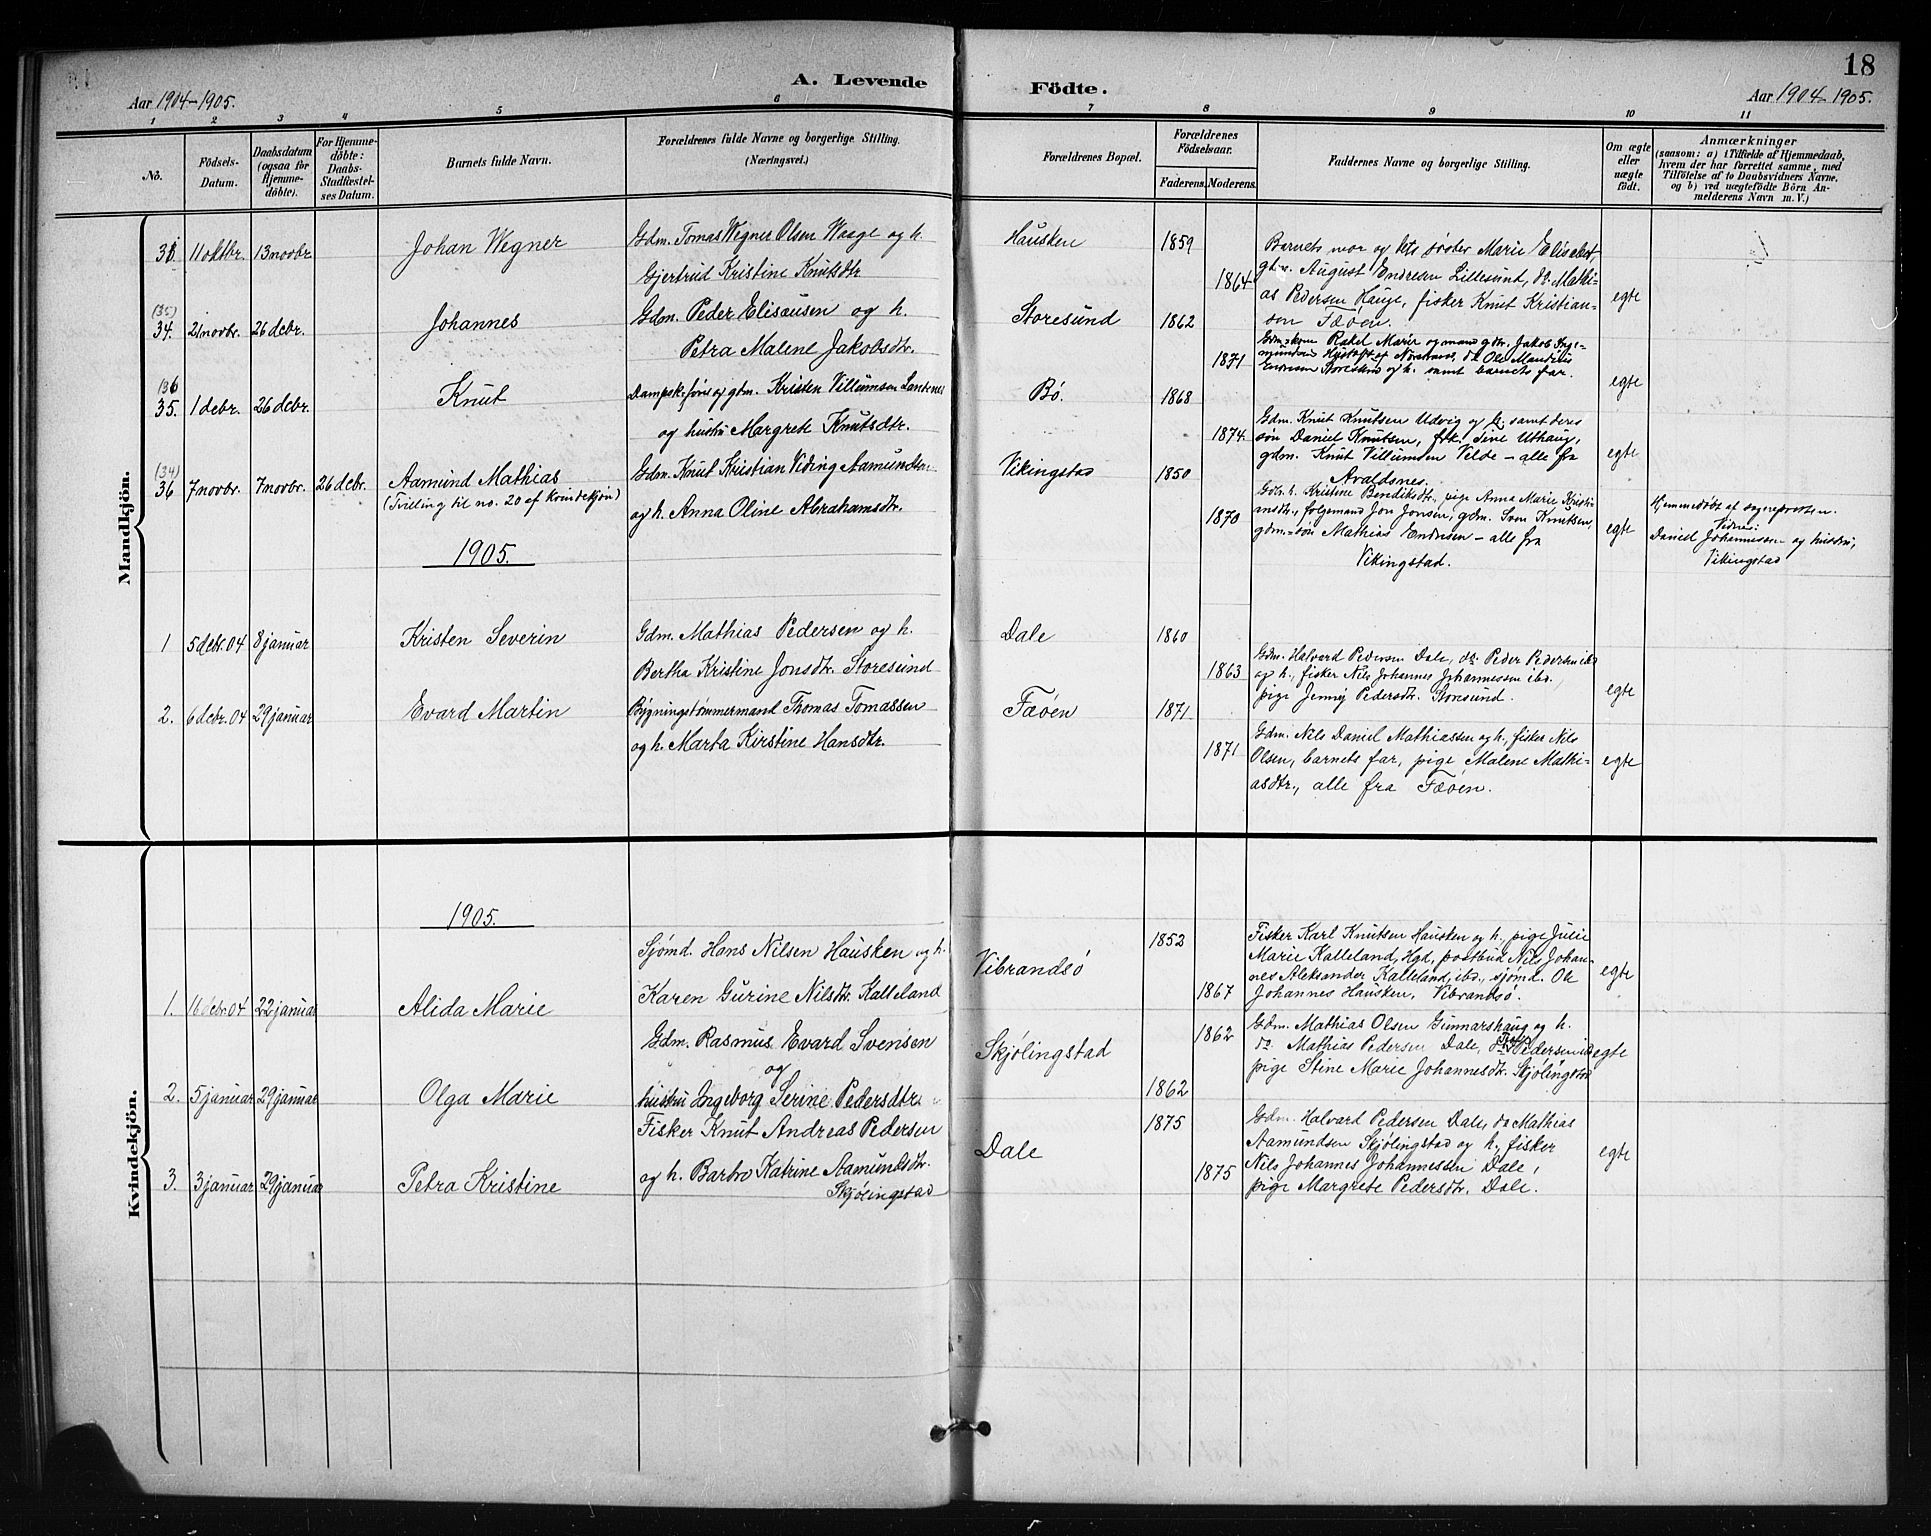 A. Levende
Aar 1904-1905.
1 2 3 4 5 6
No.
Födsels-
Datum.
Daabsdatum
(ogsaa for
Hjemme-
döbte).
For Hjemme-
döbte:
Daabs-
Stadfæstel-
ses Datum.
Barnets fulde Navn.
Forældrenes fulde Navne og borgerlige Stilling.
(Næringsvei.)
Mandkjön.
11 oktbr. 13 novbr. Johan Wegner Gdm. Tomas Wegner Olsen Waage og h.
Gjertrud Kristine Knutsdtr.
(35)
34. 21 novbr. 26 debr. Johannes Gdm. Peder Elisæusen og h.
Petra Malene Jakobsdtr.
(36)
35. 1 debr. 26 debr. Knut Dampsk.fører og gdm. Kristen Villumsen
og hustru Margrete Knutsdtr.
(34)
36 7 novbr. 7 novbr. 26 debr. Aamund Mathias Gdm. Knut Kristian Viding Aamundsen
(Tvilling til no. 20 af kvindekjøn) og h. Anna Oline Abrahamsdtr.
1905.
1 5 debr. 04 8 januar Kristen Severin Gdm. Mathias Pedersen og h.
Bertha Kristine Jonsdtr. Storesund
2. 6 debr. 04 29 januar Evard Martin Bygningstømmermand Thomas Tomassen
og h. Marta Kirstine Hansdtr.
Kvindekjön.
1905.
Sjømd. Hans Nilsen Hausken og h.
1. 16 debr. 04 22 januar Alida Marie Karen Gurine Nilsdtr. Kalleland
Gdm. Rasmus Evard Svensen
og
2. 5 januar 29 januar Olga Marie hustru Ingeborg Serine Pedersdtr.
Fisker Knut Andreas Pedersen
3. 3 januar 29 januar Petra Kristine og h. Barbro Katrine Aamundsdtr.
Skjølingstad
Födte.
18
Aar 1904-1905.
7 8 9 10 11
Forældrenes Bopæl.
Forældrenes
Födselsaar.
Faderens. Moderens.
Faddernes Navne og borgerlige Stilling.
Om ægte
eller
uægte
födt.
Anmærkninger
(saasom: a) i Tilfælde af Hjemmedaab,
hvem der har forrettet samme, med
Tilföielse af to Daabsvidners Navne,
og b) ved uægtefödte Börn An-
melderens Navn m. V.)
Hausken 1859 1864 egte
Barnets mor og dets søster Marie Elisabet,
gdm. August Endresen Lillesund, do. Mathi-
as Pedersen Hauge, fisker Knut Kristian-
sen Fæøen.
Storesund 1862 1871 egte
Gdmskone Rakel Marie og mand gdm. Jakob Inge-
mundsen
Endresen Storesund og h. samt barnets far.
Bø. 1868 1874 egte
Gdm. Knut Knutsen Udvig og h. samt deres
søn Daniel Knutsen, frk. Sine Uthaug,
gdm. Knut Villumsen Velde - alle fra
Avaldsnes.
Vikingstad 1850 1870 egte
Gdm.h. Kristine Bendiksdtr., pige Anna Marie Kristi-
ansdtr., følgemand Jon Jonsen, gdm. Sven Knutsen,
gdm.-søn Mathias Endresen - alle fra
Vikingstad.
Hjemmedøbt af sognepresten.
Vidner:
Daniel Johannessen og hustru,
Vikingstad
Dale 1860 1863 egte
Gdm. Halvard Pedersen Dale, do. Peder Pedersen ibd
og h., fisker Nils Johannes Johannessen ibd.,
pige Jenny Pedersdtr. Storesund.
Fæøen 1871 1871 egte
Gdm. Nils Daniel Mathiassen og h., fisker Nils
Olsen, barnets far, pige Malene Mathi-
asdtr., alle fra Fæøen.
Vibrandsø 1852 1867 egte
Fisker Karl Knutsen Hausken og h., pige Julie
Marie Kalleland, Hgd, postbud Nils Johan-
nes Aleksander Kalleland, ibd., sjømd. Ole
Johannes Hausken, Vibrandsø.
Skjølingstad 1862 1862 egte
Gdm. Mathias Olsen Gunnarshaug og h.
do. Mathias Pedersen Dale, do. Peder Pedersen ibd
pige Stine Marie Johannesdtr. Skjølingstad
Dale 1875 1875 egte
Gdm. Halvard Pedersen Dale, do Mathias
Aamundsen Skjølingstad og h., fisker
Nils Johannes Johannessen Dale,
pige Margrete Pedersdtr. Dale.